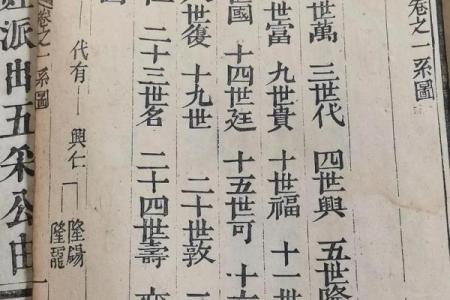 卷之一系圖
世萬 三世代 四世興 五世隆
世富 九世貴 十世福 十一世
國 十四世廷 十五世可 十
世復 十九世 二十世敦
二十三世名 二十四世壽
卷之一系圖
代有 興仁 隆錫
隆龍
派由五采公由